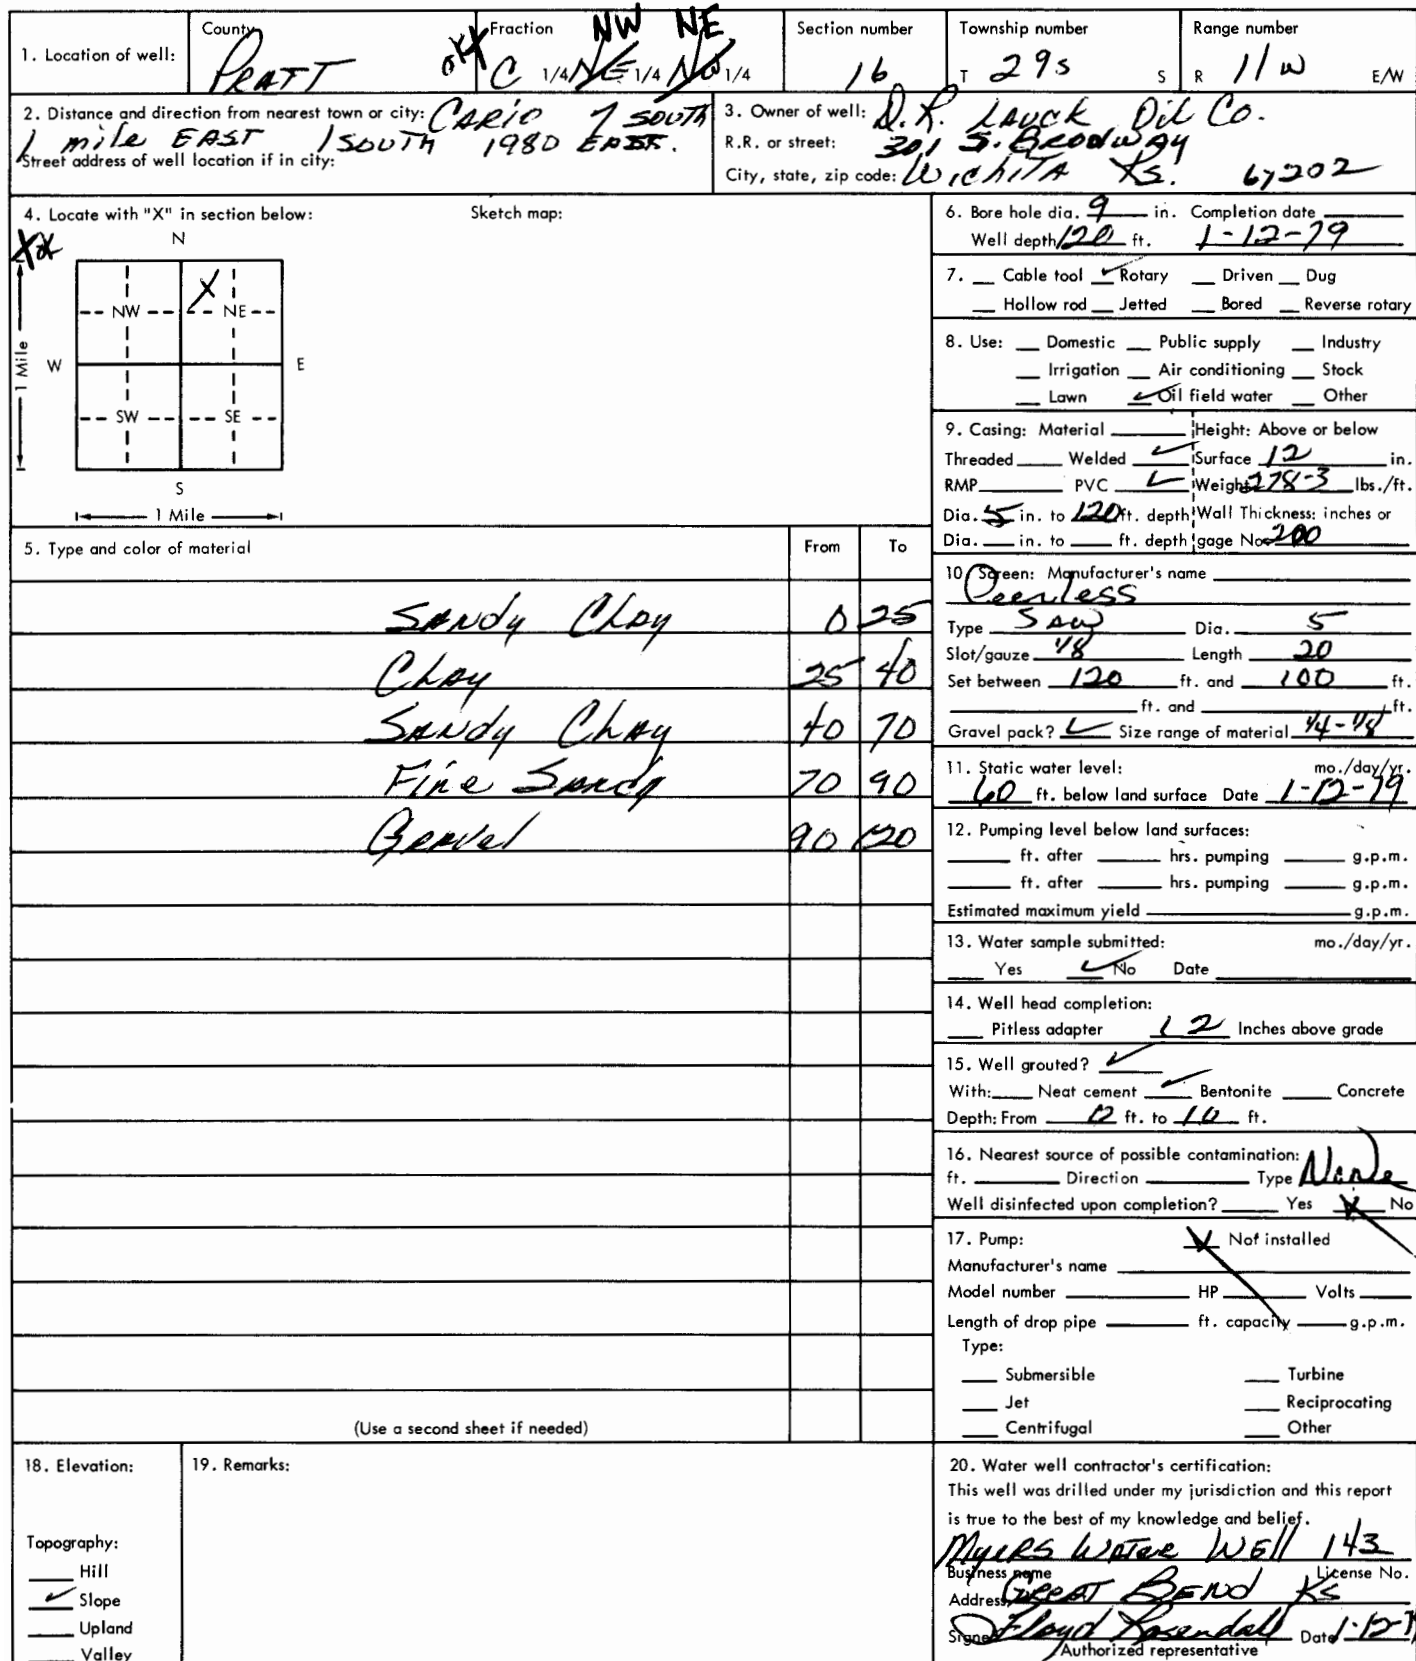 1. Location of well:
County
PRATT
Fraction NW NE
C 1/4 NE 1/4 NW 1/4
Section number
16
Township number
T 29s S
Range number
R 11 W E/W
2. Distance and direction from nearest town or city: CARIO 7 SOUTH
1 mile EAST 1 SOUTH 1980 EAST.
Street address of well location if in city:
3. Owner of well: D.R. LAUCK Oil Co.
R.R. or street: 301 S. BRODWAY
City, state, zip code: WICHITA Ks. 67202
4. Locate with "X" in section below:
Sketch map:
N
X
NW NE
W E
1 Mile
SW SE
S
1 Mile
5. Type and color of material From To
SANDy CLAy 0 25
CLAy 25 40
SANDy CLAy 40 70
Fine SANdy 70 90
GRAVel 90 120
(Use a second sheet if needed)
6. Bore hole dia. 9 in. Completion date
Well depth 120 ft. 1-12-79
7. Cable tool ✓ Rotary Driven Dug
Hollow rod Jetted Bored Reverse rotary
8. Use: Domestic Public supply Industry
Irrigation Air conditioning Stock
Lawn ✓ Oil field water Other
9. Casing: Material Height: Above or below
Threaded Welded ✓ Surface 12 in.
RMP PVC ✓ Weight 278-3 lbs./ft.
Dia. 5 in. to 120 ft. depth Wall Thickness: inches or
Dia. in. to ft. depth gage No. 200
10. Screen: Manufacturer's name
Peerless
Type SAW Dia. 5
Slot/gauze 1/8 Length 20
Set between 120 ft. and 100 ft.
ft. and ft.
Gravel pack? ✓ Size range of material 1/4-1/8
11. Static water level: mo./day/yr.
60 ft. below land surface Date 1-12-79
12. Pumping level below land surfaces:
ft. after hrs. pumping g.p.m.
ft. after hrs. pumping g.p.m.
Estimated maximum yield g.p.m.
13. Water sample submitted: mo./day/yr.
Yes ✓ No Date
14. Well head completion:
Pitless adapter 12 Inches above grade
15. Well grouted? ✓
With: Neat cement ✓ Bentonite Concrete
Depth: From 0 ft. to 10 ft.
16. Nearest source of possible contamination:
ft. Direction Type None
Well disinfected upon completion? Yes X No
17. Pump: X Not installed
Manufacturer's name
Model number HP Volts
Length of drop pipe ft. capacity g.p.m.
Type:
Submersible Turbine
Jet Reciprocating
Centrifugal Other
18. Elevation:
Topography:
Hill
✓ Slope
Upland
Valley
19. Remarks:
20. Water well contractor's certification:
This well was drilled under my jurisdiction and this report
is true to the best of my knowledge and belief.
MyERS WATER WEll 143
Business name License No.
Address GREAT BEND Ks
Signed Floyd Rosendall Date 1-12-79
Authorized representative